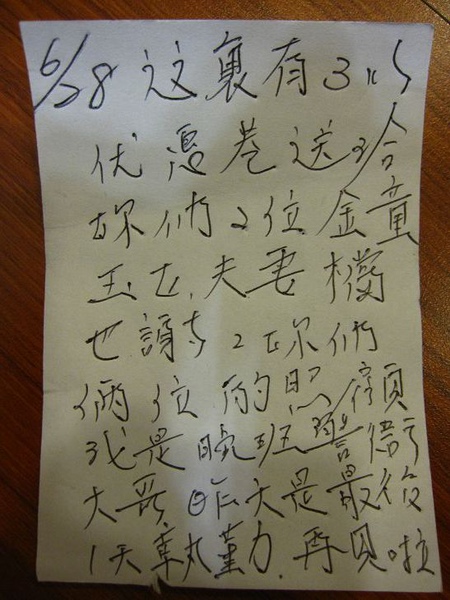 6/28 这裏有3
优惠卷送给
妳們2位金童
玉女.夫妻檔
也謝 妳們
倆位的照顧
我是晚班警衛
大哥,昨天是最後
1天執勤.再見啦